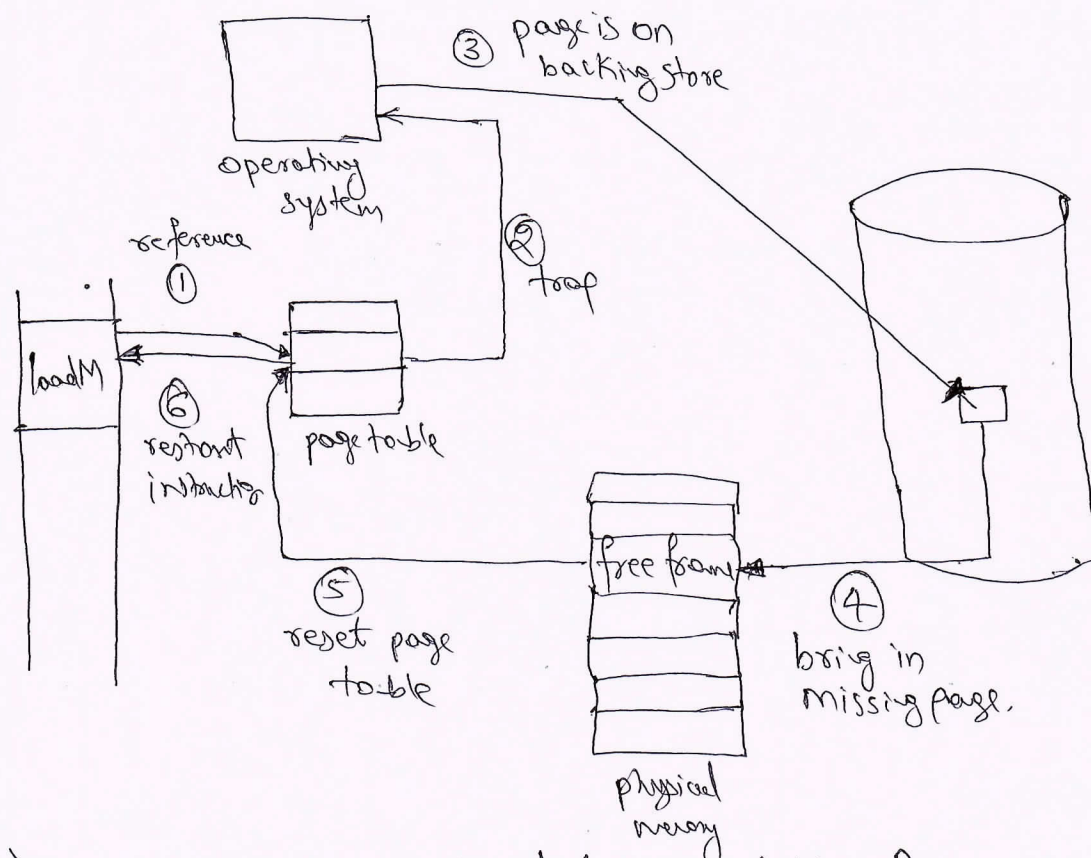 ③ page is on
backing store
operating
system
reference
①
②
trap
load M
⑥
restart
instructio
page table
free frame
⑤
reset page
table
④
bring in
missing page.
physical
memory